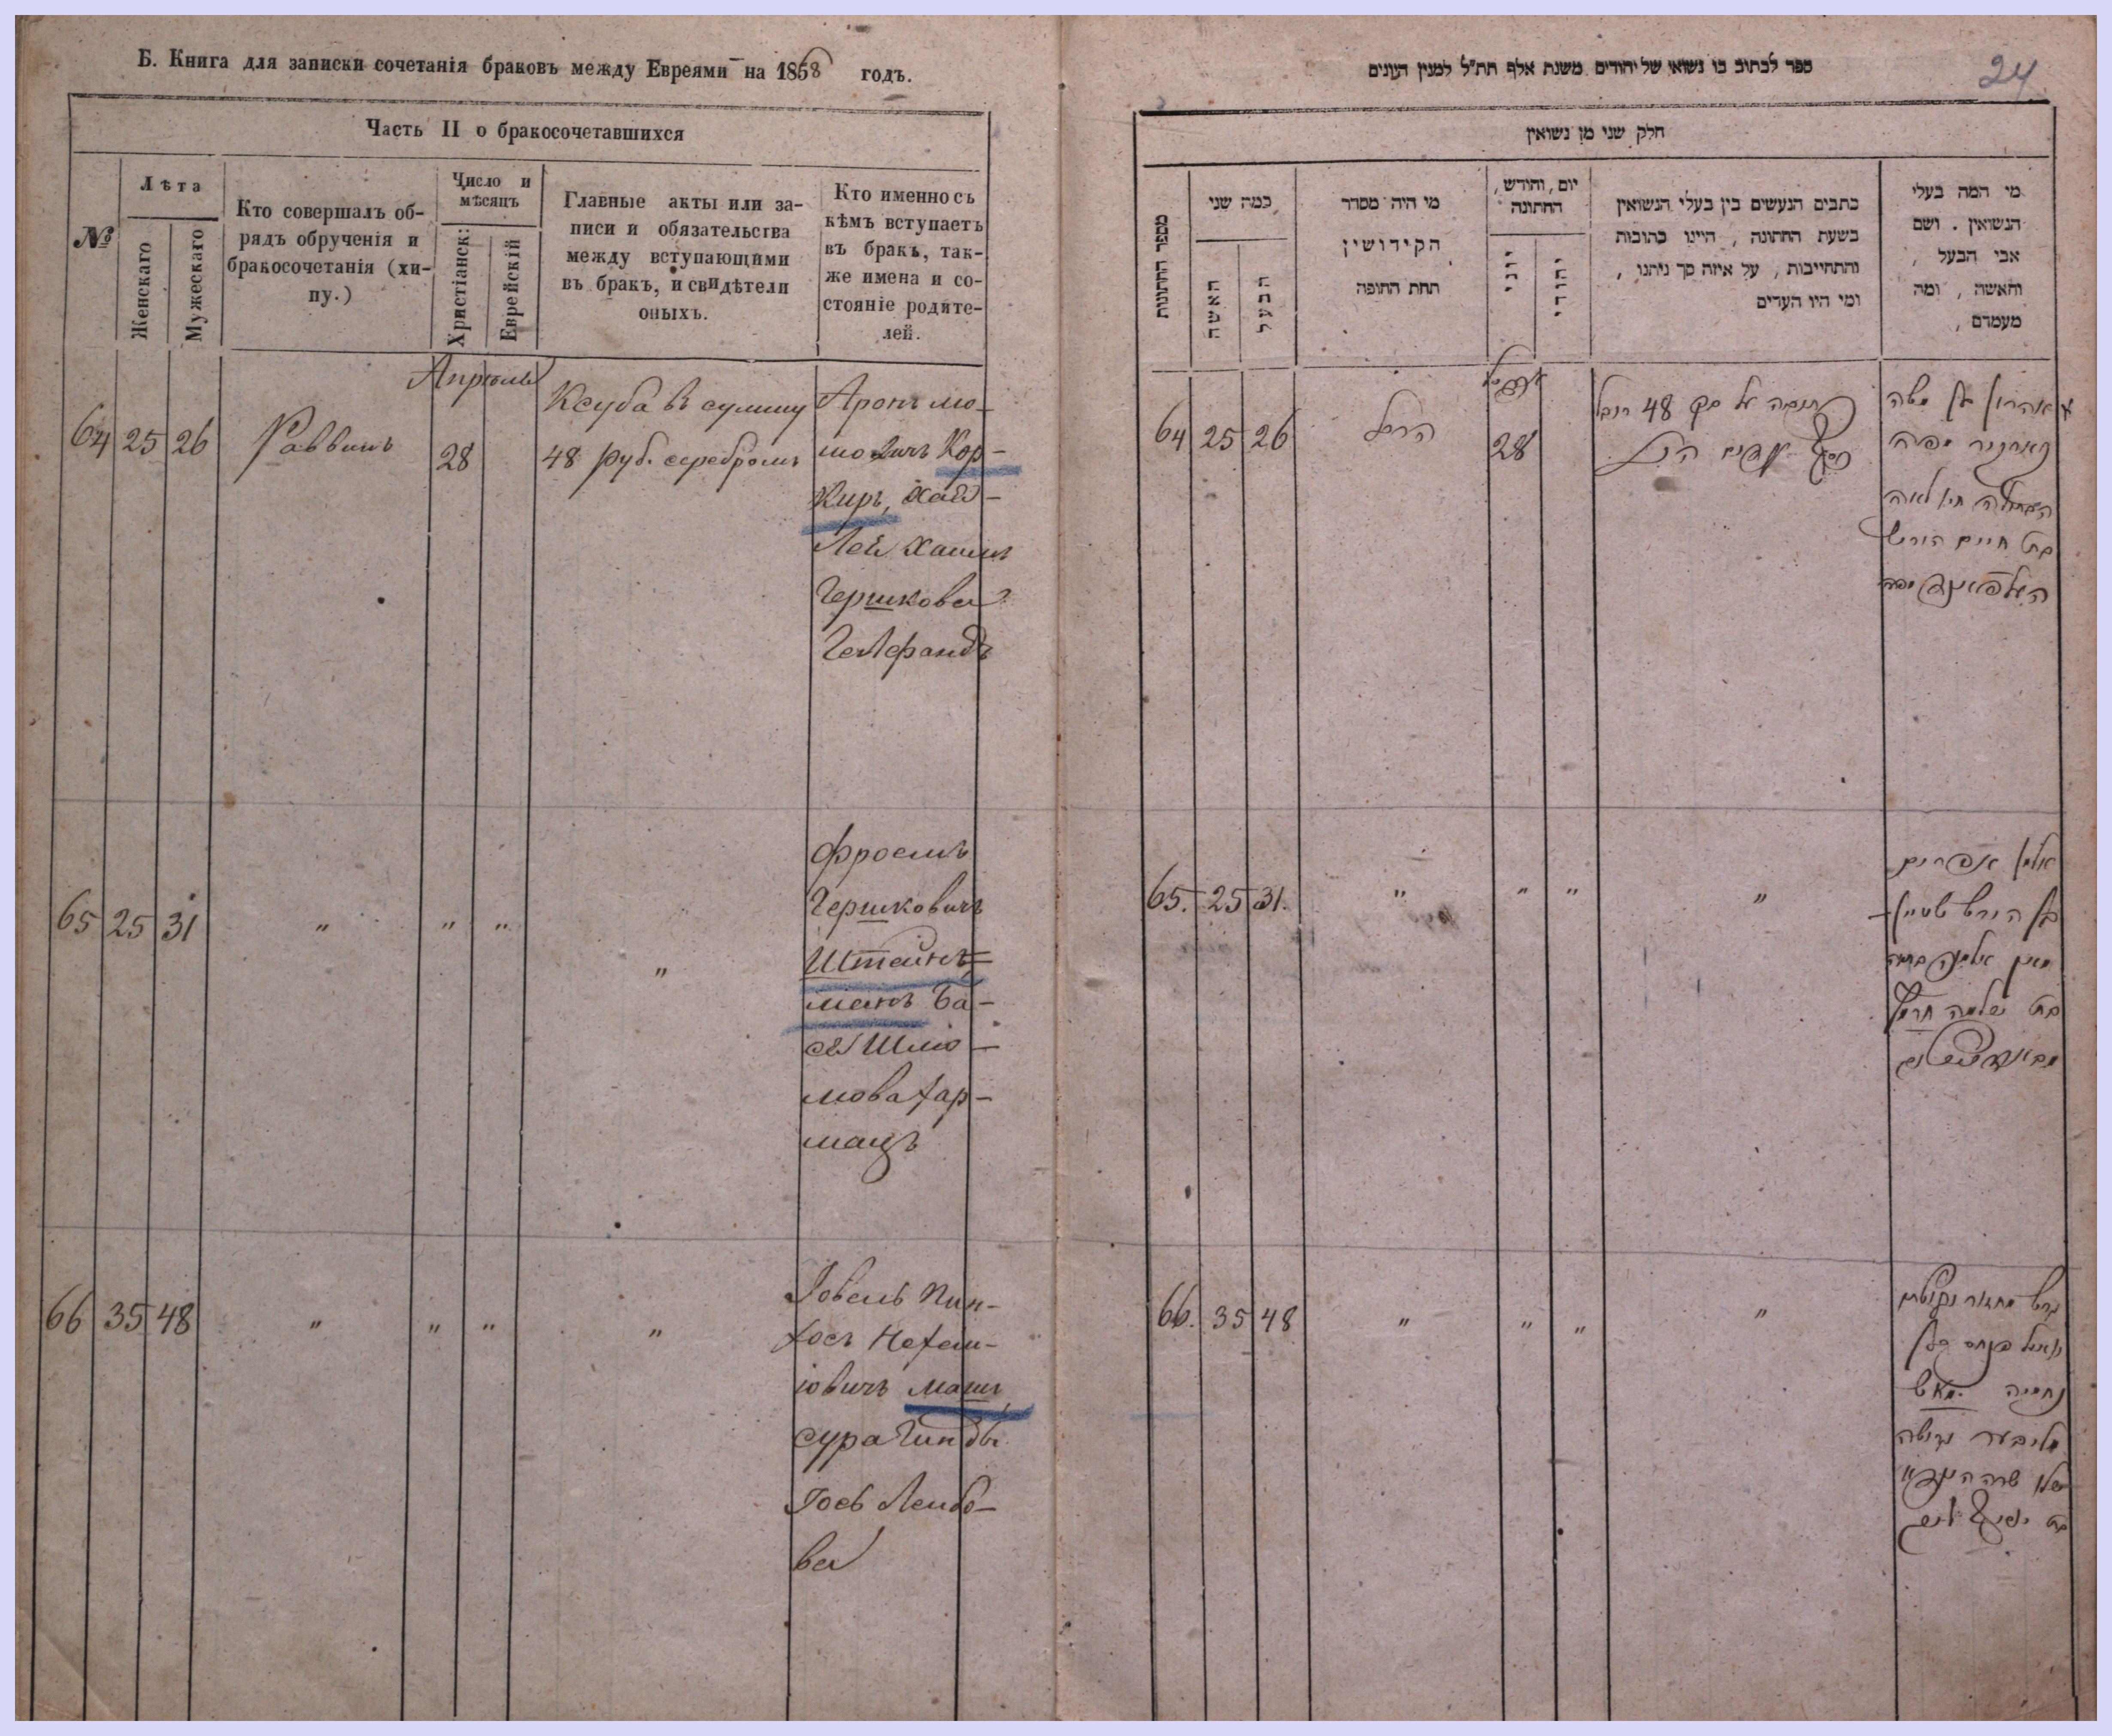 Б. Книга для записки сочетанія браковъ между Евреями на 1858 годъ.
Часть II о бракосочетавшихся
№
Лѣта
Женскаго
Мужескаго
Кто совершалъ об-
рядъ обрученія и
бракосочетанія (хи-
пу.)
Число и
мѣсяцъ
Христіанск:
Еврейскій
Главные акты или за-
писи и обязательства
между вступающими
въ бракъ, и свидѣтели
оныхъ.
Кто именно съ
кѣмъ вступаетъ
въ бракъ, так-
же имена и со-
стояніе родите-
лей.
Апрель
64 25 26 Раввинъ 28
Ксуба въ сумму
48 руб. серебромъ
Аронъ мо-
шовичъ Кор-
киръ, Хая-
Лея Хаимъ
Гершкова
Гелфандъ
65 25 31 " " " "
Фроемъ
Гершковичъ
Штейнъ=
манъ Ба-
ся Шлио-
мова Хар-
мацъ
66 35 48 " " " "
Іовель Пин-
хосъ Нехем-
іовичъ Машъ,
сура Гинды
Іосъ Лейбо-
ва
ספר לכתוב בו נשואי של יהודים משנת אלף תת״ל למנין העונים
24
חלק שני מן נשואין
מספר החתונות
כמה שני
האשה
הבעל
מי היה מסדר
הקידושין
תחת החופה
יום, וחודש,
החתונה
יוני
יהודי
כתבים הנעשים בין בעלי הנשואין
בשעת החתונה, היינו כתובות
והתחייבות, על איזה סך ניתנו,
ומי היו העדים
מי המה בעלי
הנשואין. ושם
אבי הבעל,
והאשה, ומה
מעמדם,
64 25 26 הרב 28
על סך 48 רובל
אהרון בן משה
חיי לאה
בת חיים הירש
65. 25 31. " " " "
אלמן אפרים
בן הירש שטיין
מאן אלמנה בתיה
בת שלמה חרמץ
66. 35 48 " " " "
יואל פנחס בן
נחמיה מאש